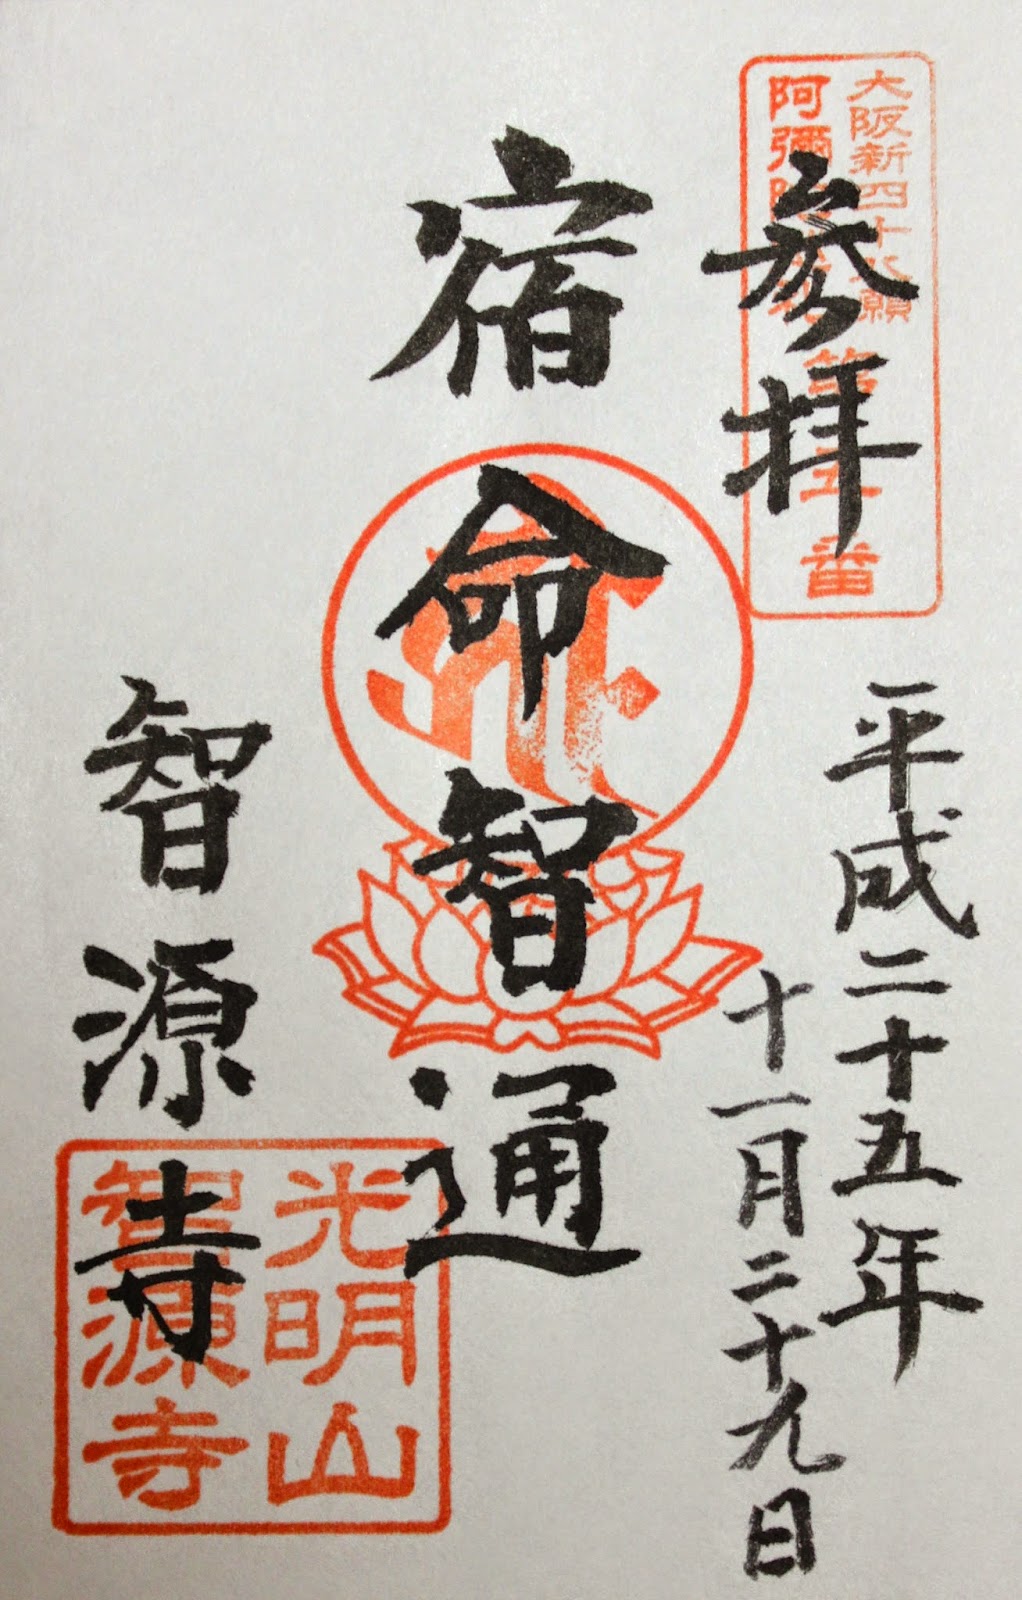 大阪新四十八願
阿彌陀巡礼
第五番
参拝
平成二十五年
十一月二十九日
宿命智通
智源寺
光明山
智源寺